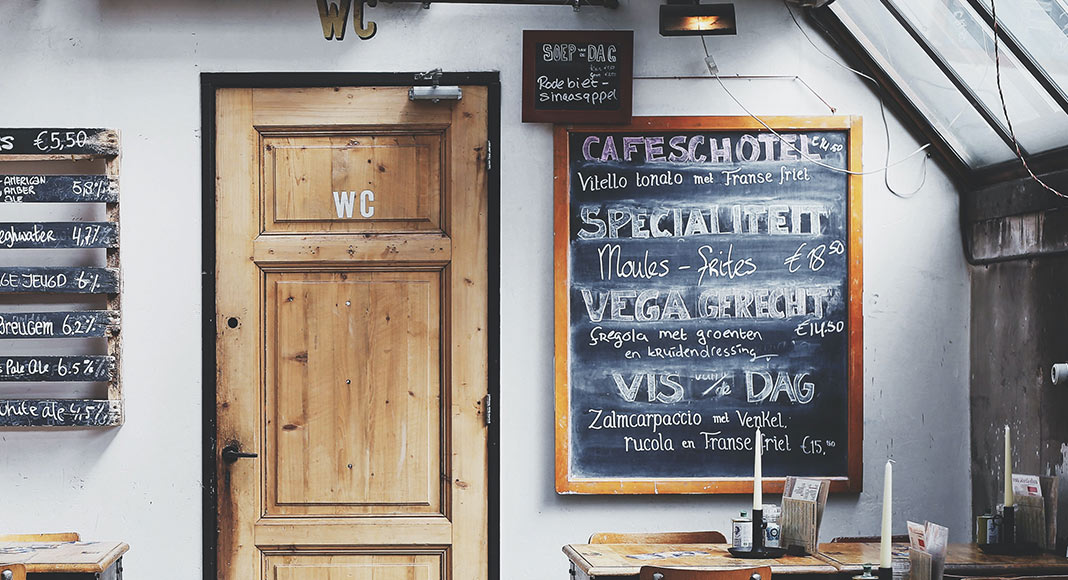 WC
€5,50
AMERICAN
AMBER
ALE 5,8%
4,7%
JEUGD 6%
6,2%
PALE ALE 6.5%
WHITE ALE 4,5%
WC
SOEP VAN DE DAG
Rode biet -
sinaasappel
CAFESCHOTEL
Vitello tonato met Franse friet
SPECIALITEIT
Moules - frites €18,50
VEGA GERECHT
€14,50
fregola met groenten
en kruidendressing
VIS van de DAG
Zalmcarpaccio met Venkel,
rucola en Franse friet €15,50